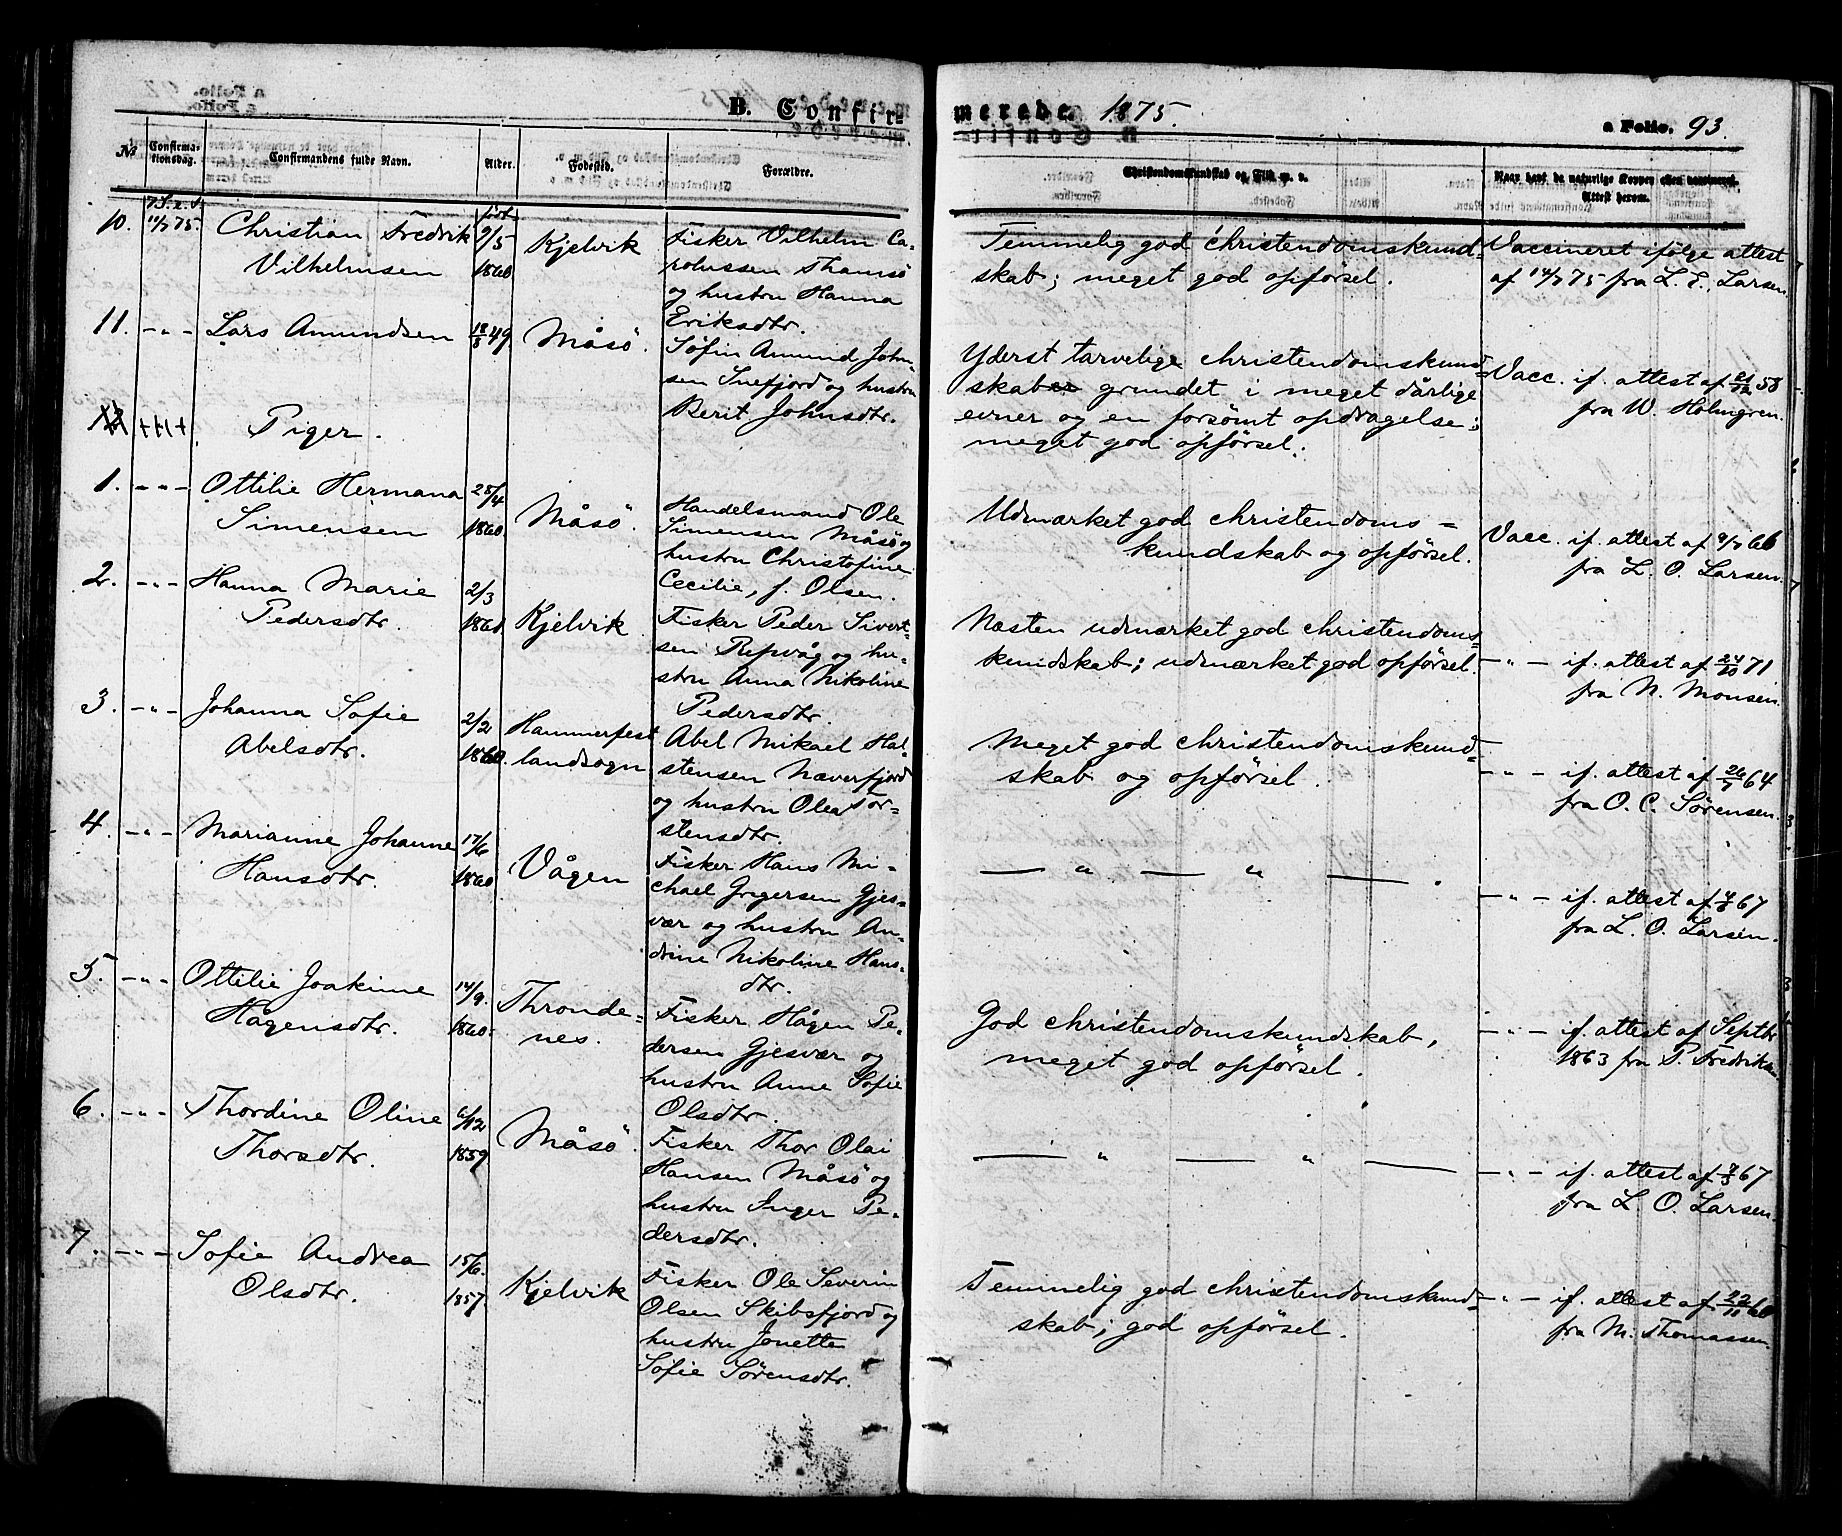 B. Confir-
merede. 1875.
a Folio. 93.
No
Confirma-
tionsdag.
Confirmandens fulde Navn.
Alder.
Fødested.
Forældre.
Christendomskundskab og Flid m. v.
Naar havt de naturlige Kopper eller vaccineret.
Attest herom.
10.
7 S. e. t.
11/7 75.
Christian Fredrik
Vilhelmsen
født
9/5
1860
Kjelvik
Fisker Vilhelm Ca-
rolussen Thamsö
og hustru Hanna
Eriksdtr.
Temmelig god christendomskund-
skab; meget god opførsel.
Vaccineret ifølge attest
af 14/7 75 fra L. E. Larsen
11. - " -
Lars Amundsen
18/8 49.
Måsö.
Søfin Amund John-
sen Snefjord og hustru
Berit Johnsdtr.
Yderst tarvelige christendomskund-
skaber grundet i meget dårlige
evner og en forsømt opdragelse;
meget god opførsel.
Vacc. if. attest af 21/12 58
fra W. Holmgren.
Piger.
1. - " -
Ottilie Hermana
Simensen
28/4
1860.
Måsö.
Handelsmand Ole
Simensen Måsö og
hustru Christofine
Cecilie, f. Olsen.
Udmærket god christendoms-
kundskab og opførsel.
Vacc. if. attest af 9/7 66
fra L. O. Larsen.
2. - " -
Hanna Marie
Pedersdtr.
2/3
1861
Kjelvik
Fisker Peder Sivert-
sen Repvåg og hu-
stru Anna Nikoline
Pedersdtr.
Næsten udmærket god christendoms-
kundskab; udmærket god opførsel.
- " - if. attest af 24/10 71
fra N. Monsen.
3. - " -
Johanna Sofie
Abelsdtr.
2/2
1860.
Hammerfest
landsogn
Abel Mikael Hal-
stensen Næverfjord
og hustru Olea Tor-
stensdtr.
Meget god christendomskund-
skab og opførsel.
- " - if. attest af 26/7 64
fra O. C. Sørensen.
4. - " -
Marianne Johanne
Hansdtr.
17/6
1860
Vågen
Fisker Hans Mi-
chael Gregersen Gjes-
vær og hustru An-
drine Nikoline Hans-
dtr.
— " — " — .
- " - if. attest af 7/8 67
fra L. O. Larsen.
5. - " -
Ottilie Joakime
Hågensdtr.
14/9.
1860.
Thronde-
nes.
Fisker Hågen Pe-
dersen Gjesvær og
hustru Anne Sofie
Olsdtr.
God christendomskundskab,
meget god opførsel.
- " - if. attest af Septbr
1863 fra P. Fredriksen
6. - " -
Thordine Oline
Thorsdtr.
6/12
1859
Måsö.
Fisker Thor Olai
Hansen Måsö og
hustru Inger Pe-
dersdtr.
— " — " —
- " - if. attest af 7/3 67
fra L. O. Larsen.
7. - " -
Sofie Andrea
Olsdtr.
15/6.
1857.
Kjelvik
Fisker Ole Severin
Olsen Skibsfjord og
hustru Jonette
Sofie Sørensdtr.
Temmelig god christendomskund-
skab; god opførsel.
- " - if. attest af 22/10 60
fra M. Thomassen.